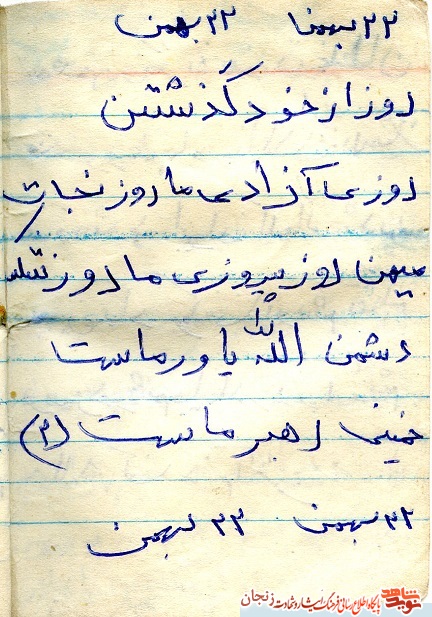 ۲۲ بهمن ۲۲ بهمن
روز از خود گذشتن
روزی آزادی ما روز نجات
میهن روز پیروزی ما روز شکست
دشمن الله یاور ماست
خمینی رهبر ماست (۲)
۲۲ بهمن ۲۲ بهمن
نوید شاهد پایگاه اطلاع رسانی فرهنگ ایثار و شهادت زنجان